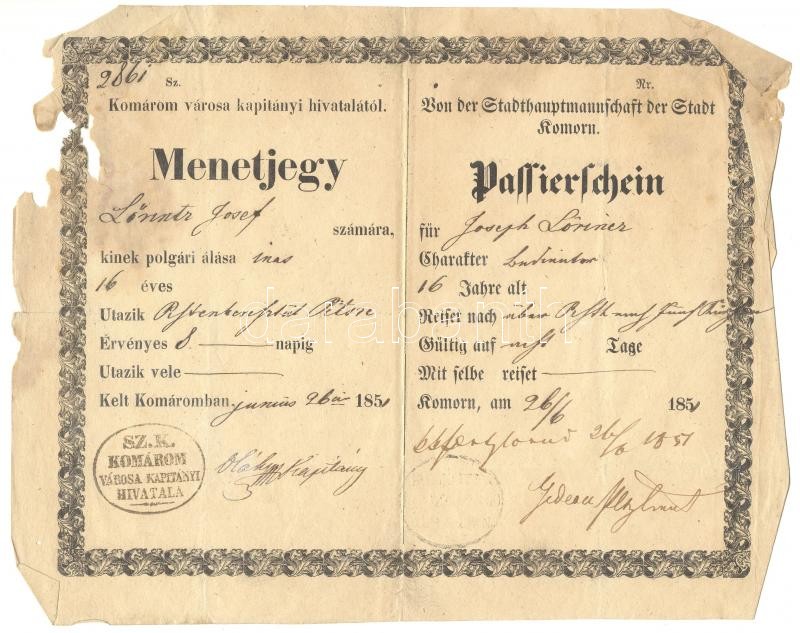 2861 Sz.
Komárom városa kapitányi hivatalától.
Menetjegy
Josef számára,
kinek polgári álása inas
16 éves
Utazik
Érvényes 8 napig
Utazik vele
Kelt Komáromban, junius 26 185
SZ. K.
KOMÁROM
VÁROSA KAPITÁNYI
HIVATALA
Kapitány
Nr.
Von der Stadthauptmannschaft der Stadt
Komorn.
Passierschein
für Joseph
Charakter
16 Jahre alt
Reiset nach über Pesth nach
Gültig auf acht Tage
Mit selbe reiset
Komorn, am 26/6 1851
26/6 1851
darabanth